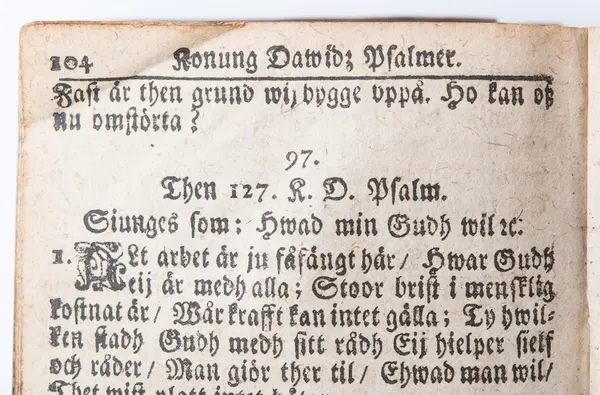 104 Konung Dawidz Psalmer.
Fast är then grund wij bygge vppå. Ho kan oß
nu omstörta?
97.
Then 127. K. D. Psalm.
Siunges som: Hwad min Gudh wil ꝛc.
1. Alt arbet är ju fåfängt här/ Hwar Gudh
eij är medh alla; Stoor brist i mensklig
kostnat är/ Wår krafft kan intet gälla; Ty hwil-
ken stadh Gudh medh sitt rådh Eij hielper sielf
och råder/ Man giör ther til/ Ehwad man wil/
Thet wist platt intet båter.